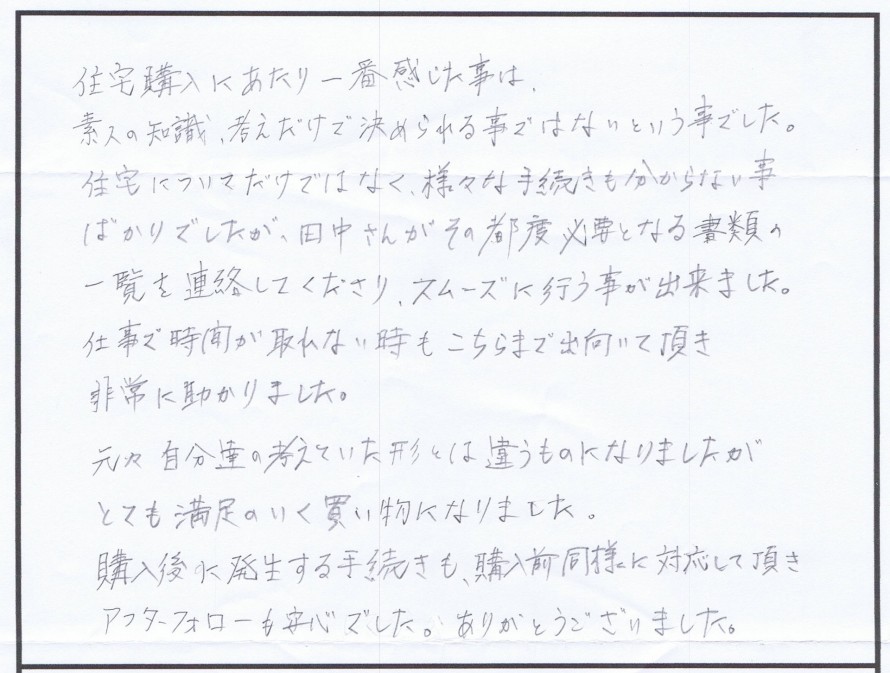 住宅購入にあたり一番感じた事は、
素人の知識、考えだけで決められる事ではないという事でした。
住宅についてだけではなく、様々な手続きも分からない事
ばかりでしたが、田中さんがその都度必要となる書類の
一覧を連絡してくださり、スムーズに行う事が出来ました。
仕事で時間が取れない時もこちらまで出向いて頂き
非常に助かりました。
元々自分達の考えていた形とは違うものになりましたが
とても満足のいく買い物になりました。
購入後に発生する手続きも、購入前同様に対応して頂き
アフターフォローも安心でした。ありがとうございました。